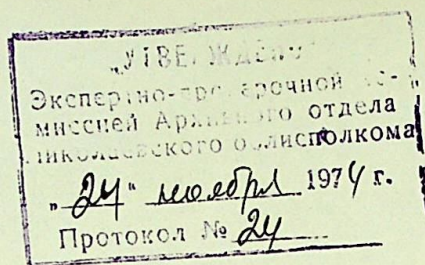 „УТВЕРЖДЕНО"
Экспертно-проверочной ко-
миссией Архивного отдела
Николаевского облисполкома
„24" ноября 1974 г.
Протокол № 24